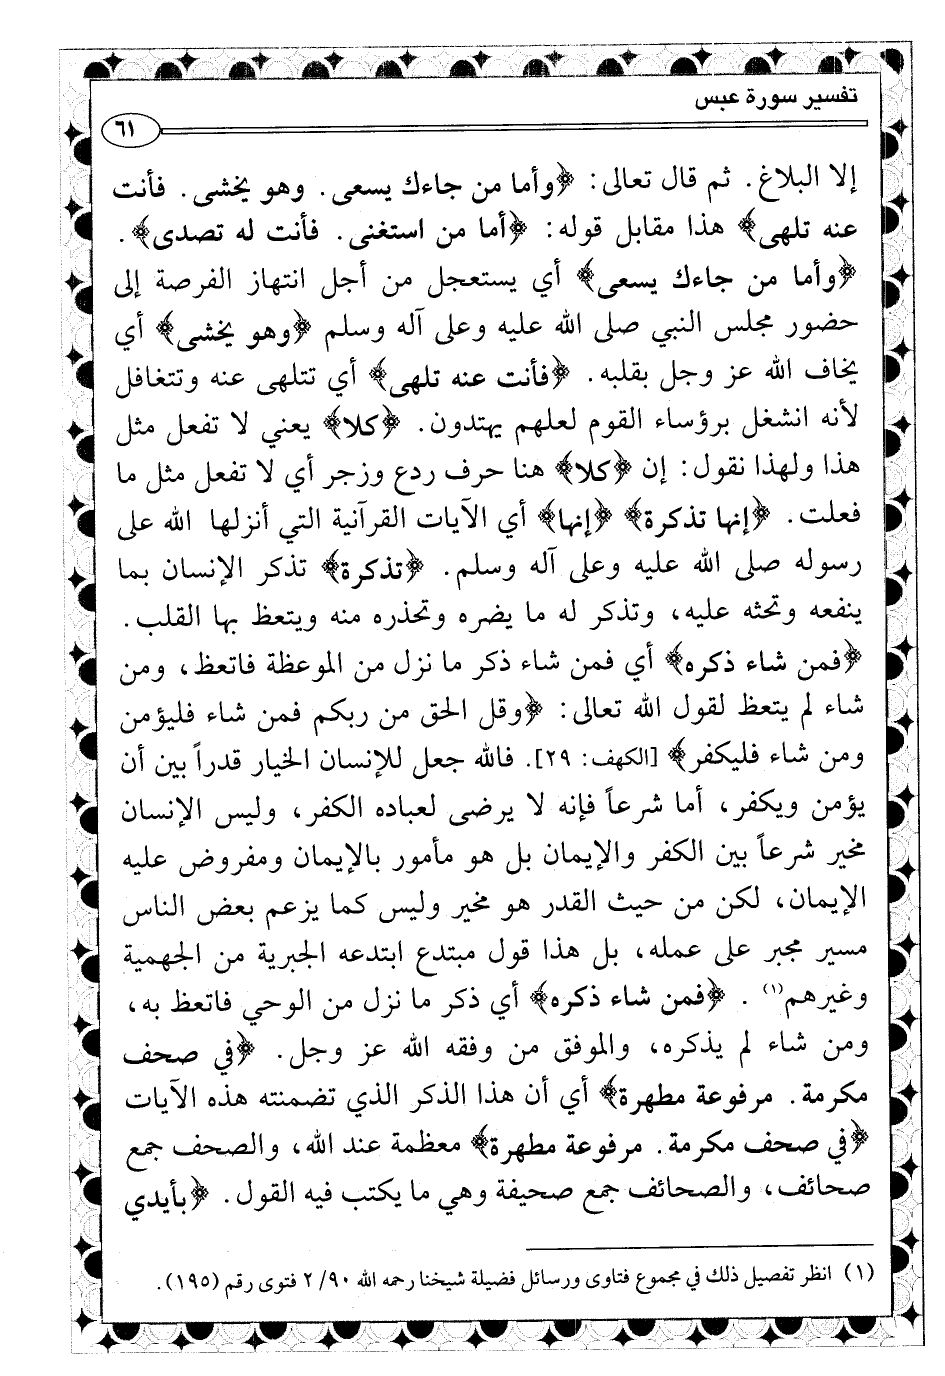 تفسير سورة عبس
٦١
إلا البلاغ. ثم قال تعالى: ﴿وأما من جاءك يسعى. وهو يخشى. فأنت
عنه تلهى﴾ هذا مقابل قوله: ﴿أما من استغنى. فأنت له تصدى﴾.
﴿وأما من جاءك يسعى﴾ أي يستعجل من أجل انتهاز الفرصة إلى
حضور مجلس النبي صلى الله عليه وعلى آله وسلم ﴿وهو يخشى﴾ أي
يخاف الله عز وجل بقلبه. ﴿فأنت عنه تلهى﴾ أي تتلهى عنه وتتغافل
لأنه انشغل برؤساء القوم لعلهم يهتدون. ﴿كلا﴾ يعني لا تفعل مثل
هذا ولهذا نقول: إن ﴿كلا﴾ هنا حرف ردع وزجر أي لا تفعل مثل ما
فعلت. ﴿إنها تذكرة﴾ ﴿إنها﴾ أي الآيات القرآنية التي أنزلها الله على
رسوله صلى الله عليه وعلى آله وسلم. ﴿تذكرة﴾ تذكر الإنسان بما
ينفعه وتحثه عليه، وتذكر له ما يضره وتحذره منه ويتعظ بها القلب.
﴿فمن شاء ذكره﴾ أي فمن شاء ذكر ما نزل من الموعظة فاتعظ، ومن
شاء لم يتعظ لقول الله تعالى: ﴿وقل الحق من ربكم فمن شاء فليؤمن
ومن شاء فليكفر﴾ [الكهف: ٢٩]. فالله جعل للإنسان الخيار قدراً بين أن
يؤمن ويكفر، أما شرعاً فإنه لا يرضى لعباده الكفر، وليس الإنسان
مخير شرعاً بين الكفر والإيمان بل هو مأمور بالإيمان ومفروض عليه
الإيمان، لكن من حيث القدر هو مخير وليس كما يزعم بعض الناس
مسير مجبر على عمله، بل هذا قول مبتدع ابتدعه الجبرية من الجهمية
وغيرهم(١). ﴿فمن شاء ذكره﴾ أي ذكر ما نزل من الوحي فاتعظ به،
ومن شاء لم يذكره، والموفق من وفقه الله عز وجل. ﴿في صحف
مكرمة. مرفوعة مطهرة﴾ أي أن هذا الذكر الذي تضمنته هذه الآيات
﴿في صحف مكرمة. مرفوعة مطهرة﴾ معظمة عند الله، والصحف جمع
صحائف، والصحائف جمع صحيفة وهي ما يكتب فيه القول. ﴿بأيدي
(١) انظر تفصيل ذلك في مجموع فتاوى ورسائل فضيلة شيخنا رحمه الله ٢/٩٠ فتوى رقم (١٩٥).